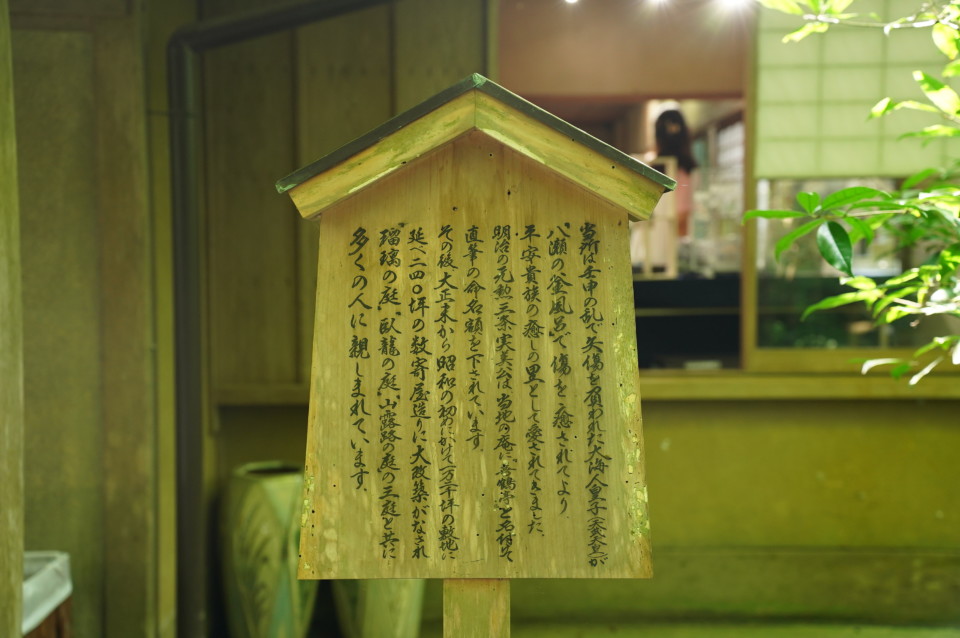 当所は壬申の乱で矢傷を負われた大海人皇子(天武天皇)が
"八瀬の釜風呂"で傷を癒されてより
平安貴族の癒しの里として愛されてきました。
明治の元勲三条実美公は当地の庵に"喜鶴亭"と名付けて
直筆の命名額を下されています。
その後、大正末から昭和の初めにかけて一万二千坪の敷地に
延べ二四〇坪の数寄屋造りに大改築がなされ
"瑠璃の庭、臥龍の庭、山露路の庭の三庭と共に
多くの人に親しまれています。